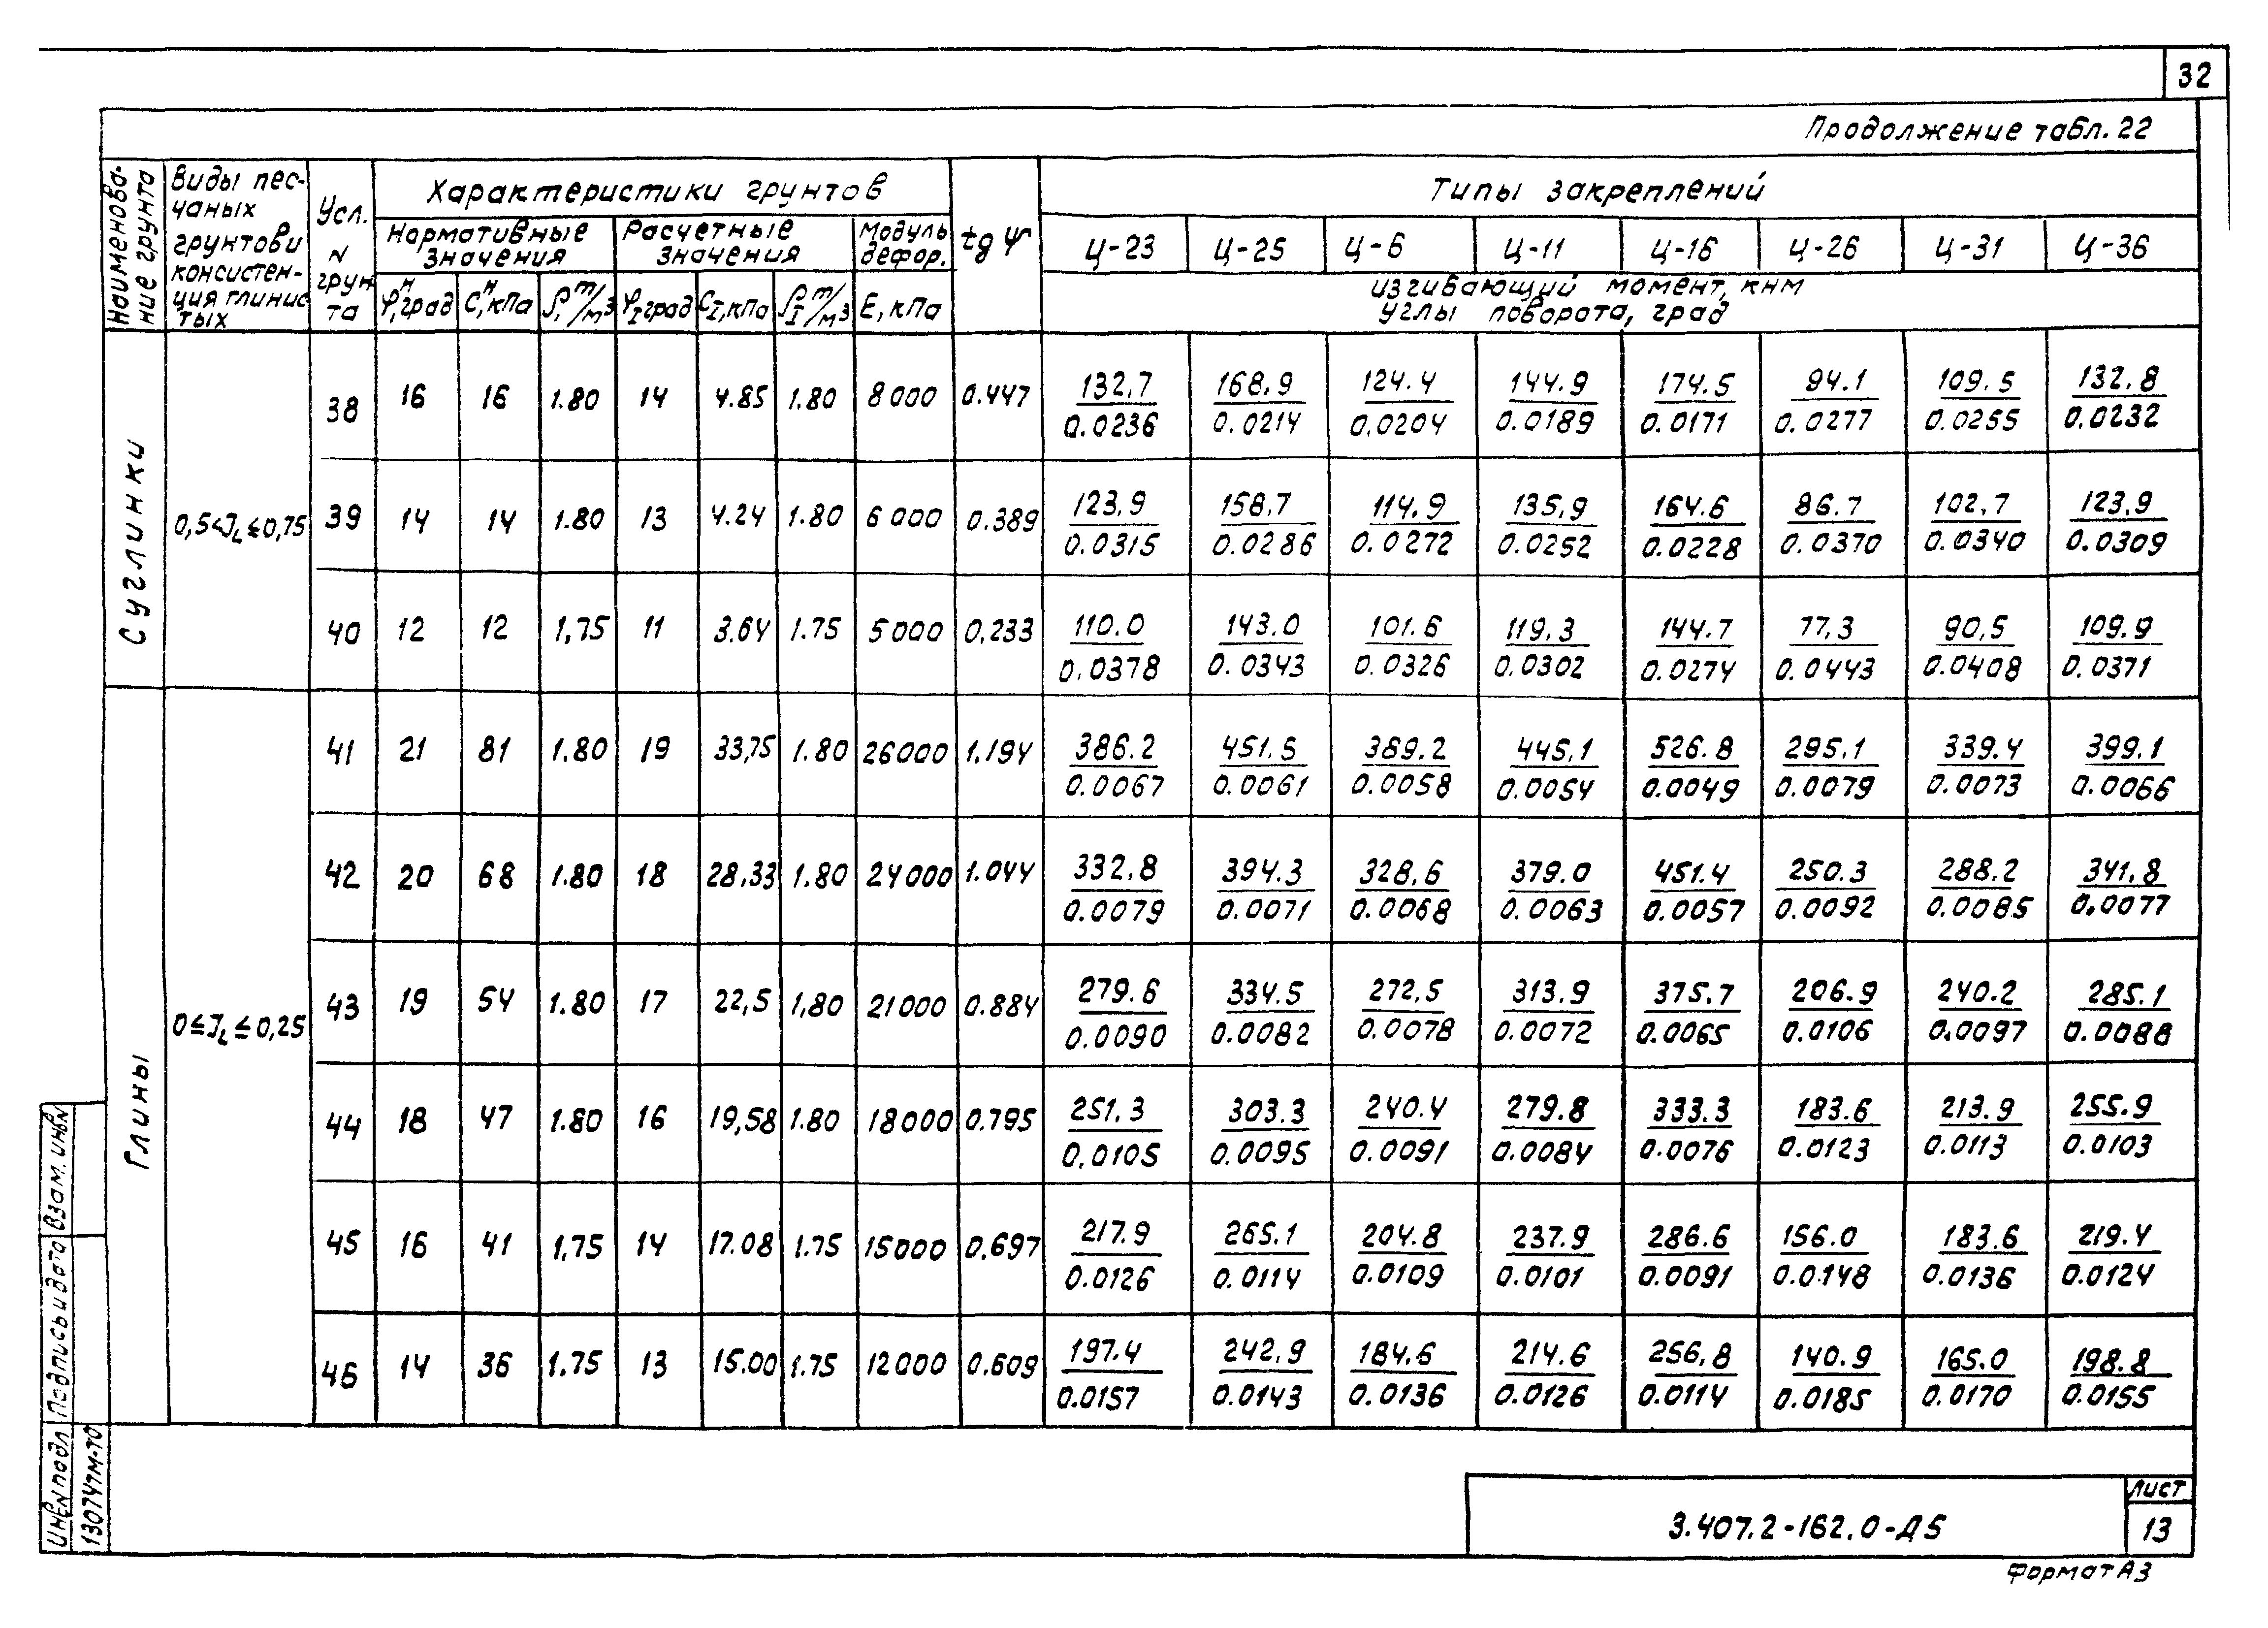 32
Продолжение табл. 22
Наименова-
ние грунта
Виды пес-
чаных
грунтов и
консистен-
ция глинис
тых
Усл.
N
грун
та
Характеристики грунтов
Нормативные
значения
Расчетные
значения
Модуль
дефор.
φᴴ, град
Cᴴ, кПа
ρ, т/м³
φI град
CI, кПа
ρI т/м³
E, кПа
tg ψ
Типы закреплений
Ц-23 Ц-25 Ц-6 Ц-11 Ц-16 Ц-26 Ц-31 Ц-36
изгибающий момент, кнм
углы поворота, град
Суглинки
0,5<JL≤0,75
38 16 16 1.80 14 4.85 1.80 8000 0.447
132,7 168,9 124.4 144.9 174.5 94.1 109.5 132.8
0.0236 0.0214 0.0204 0.0189 0.0171 0.0277 0.0255 0.0232
39 14 14 1.80 13 4.24 1.80 6000 0.389
123,9 158,7 114.9 135,9 164.6 86.7 102,7 123,9
0.0315 0.0286 0.0272 0.0252 0.0228 0.0370 0.0340 0.0309
40 12 12 1,75 11 3.64 1.75 5000 0,233
110.0 143.0 101.6 119,3 144.7 77,3 90,5 109.9
0.0378 0.0343 0.0326 0.0302 0.0274 0.0443 0.0408 0.0371
Глины
0≤JL≤0,25
41 21 81 1.80 19 33,75 1.80 26000 1.194
386.2 451,5 389.2 445,1 526.8 295.1 339.4 399.1
0.0067 0.0061 0.0058 0.0054 0.0049 0.0079 0.0073 0.0066
42 20 68 1.80 18 28,33 1.80 24000 1.044
332,8 394.3 328,6 379.0 451.4 250.3 288.2 341,8
0.0079 0.0071 0.0068 0.0063 0.0057 0.0092 0.0085 0.0077
43 19 54 1.80 17 22,5 1,80 21000 0.884
279.6 334.5 272,5 313.9 375.7 206.9 240.2 285.1
0.0090 0.0082 0.0078 0.0072 0.0065 0.0106 0.0097 0.0088
44 18 47 1.80 16 19,58 1.80 18000 0.795
251,3 303.3 240.4 279.8 333.3 183.6 213.9 255.9
0.0105 0.0095 0.0091 0.0084 0.0076 0.0123 0.0113 0.0103
45 16 41 1,75 14 17.08 1.75 15000 0,697
217.9 265.1 204.8 237.9 286.6 156.0 183.6 219.4
0.0126 0.0114 0.0109 0.0101 0.0091 0.0148 0.0136 0.0124
46 14 36 1.75 13 15.00 1.75 12000 0.609
197.4 242,9 184.6 214.6 256,8 140.9 165.0 198.8
0.0157 0.0143 0.0136 0.0126 0.0114 0.0185 0.0170 0.0155
Инв N подл Подпись и дата Взам. инв N
13074ТМ-Т0
3.407.2-162.0-Д5
Лист
13
Формат А3